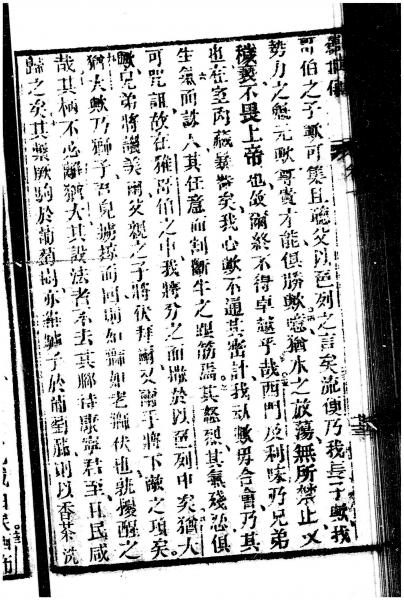 伯之子歟可集且聽父以色列之言矣流便乃我長子歟我
勢力之無元歟尊貴才能俱勝歟噫猶水之放蕩無所禁止又
穢褻不畏上帝也故爾終不得卓越乎哉西門及利味乃兄弟
也在室內藏暴器矣我心歟不通其密計我歟毋合會乃其
生氣而誅人其任意而割斷牛之腿筋焉其怒烈其氣殘忍俱
可咒詛故在雅哥伯之中我將分之而撒於以色列中矣猶大
歟兄弟將讚美爾父親之子將伏拜爾又爾手將下敵之項矣
猶大歟乃獅子吾兒擄而回頓如獅如老獅伏也孰擾醒之
哉其柄不必離猶大其設法者不去其腳待歟寧君至且民咸
歸之矣其繫厥駒於葡萄樹亦維驢子於葡萄藤則以香茶洗